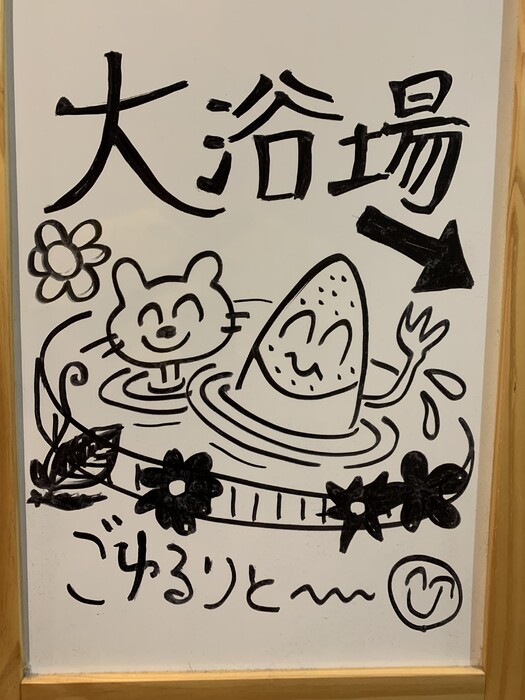 大浴場
ごゆるりと〜